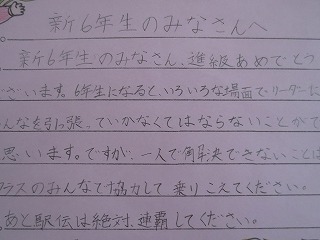 新6年生のみなさんへ
新6年生のみなさん、進級おめでとう
ざいます。6年生になると、いろいろな場面でリーダーに
んなを引っ張っていかなくてはならないことがで
思います。ですが、一人で解決できないことは
クラスのみんなで協力して乗りこえてください。
あと駅伝は絶対、連覇してください。